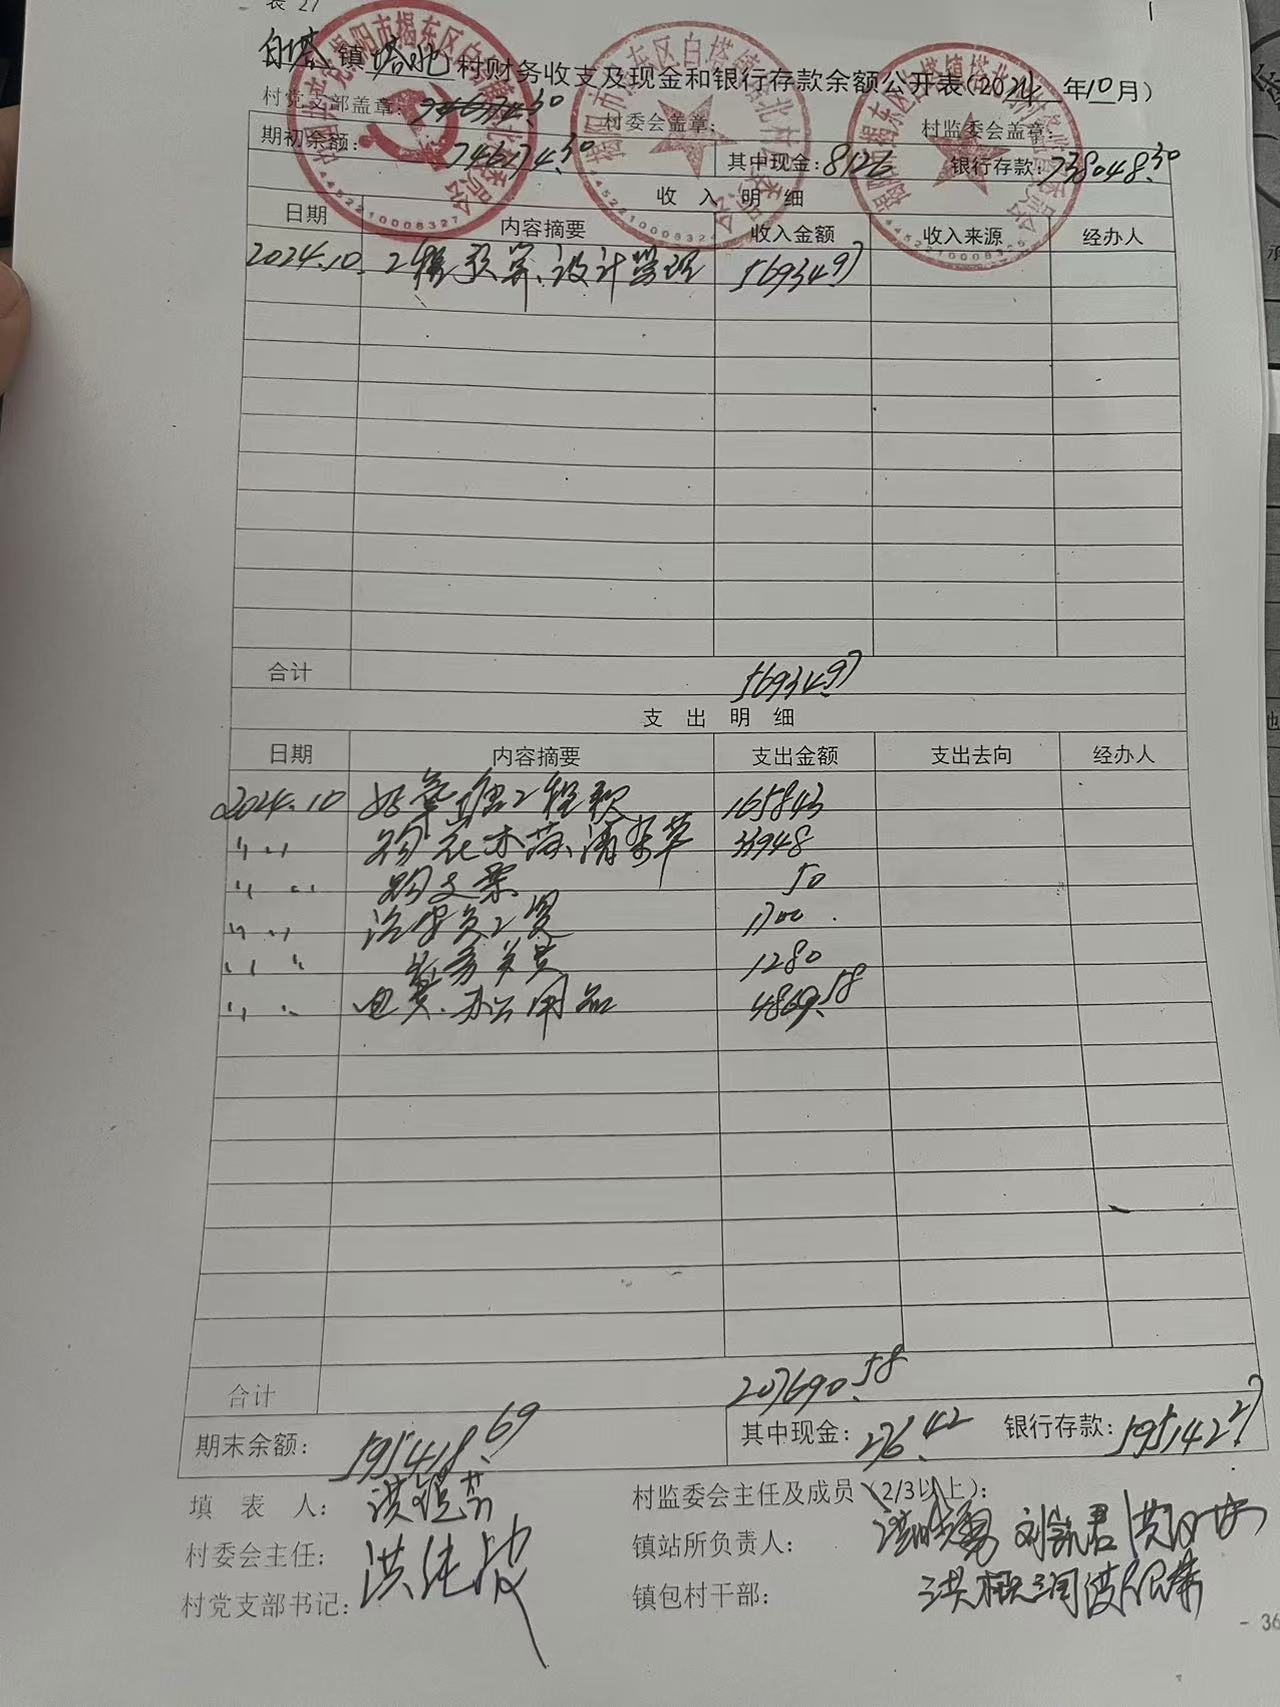 表 27
白塔镇塔北村财务收支及现金和银行存款余额公开表(2024年10月)
村党支部盖章: 村委会盖章: 村监委会盖章:
期初余额: 746174.30 其中现金: 8126 银行存款: 738048.30
收 入 明 细
日期 内容摘要 收入金额 收入来源 经办人
2024.10. 工程预算、设计监理 56934.97
合计 56934.97
支 出 明 细
日期 内容摘要 支出金额 支出去向 经办人
2024.10 工程款 165843
〃 〃 购花木苗、清杂草 33948
〃 〃 购支票 50
〃 〃 治安员工资 1700
〃 〃 1280
〃 〃 电费、办公用品 4869.58
合计 207690.58
期末余额: 595418.69 其中现金: 276.42 银行存款: 595142.27
填 表 人: 村监委会主任及成员(2/3以上):
村委会主任: 镇站所负责人:
村党支部书记: 镇包村干部:
- 36